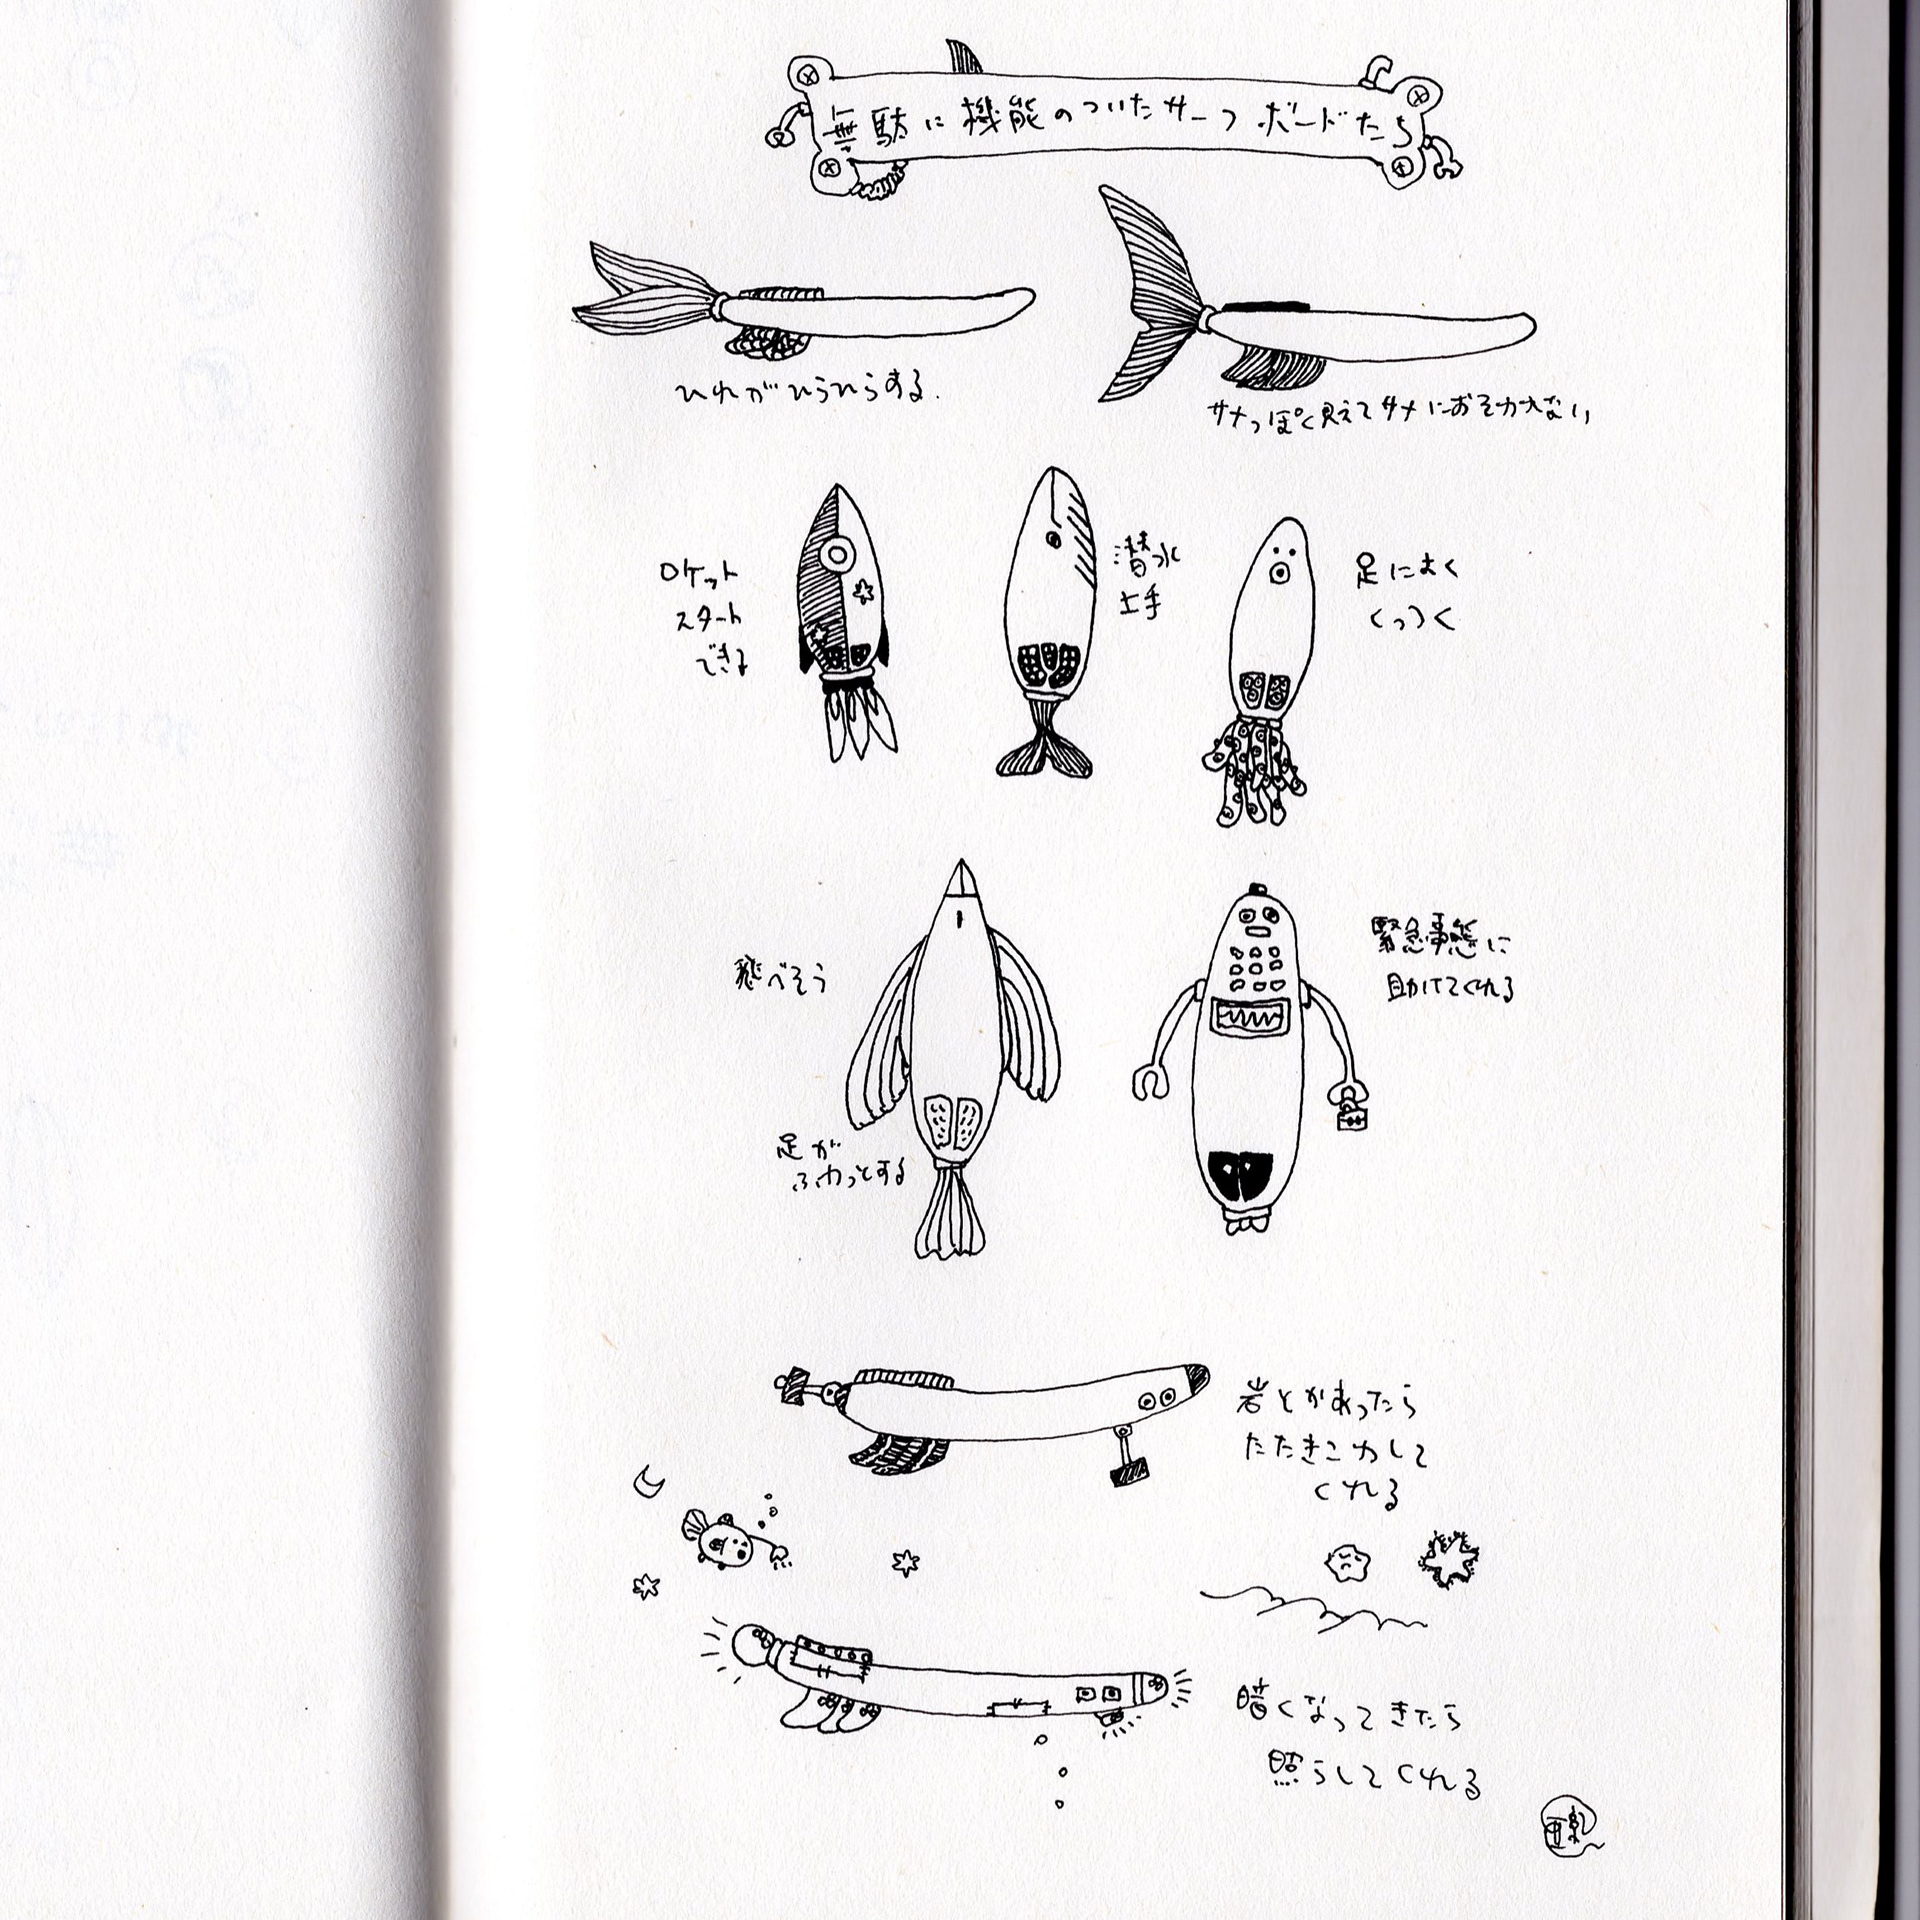 無駄に機能のついたサーフボードたち
ひれがひらひらする.
サメっぽく見えてサメにおそわれない
ロケット
スタート
できる
潜水
上手
足によく
くっつく
飛べそう
足が
ふわっとする
緊急事態に
助けてくれる
岩とかあったら
たたきこわして
くれる
暗くなってきたら
照らしてくれる